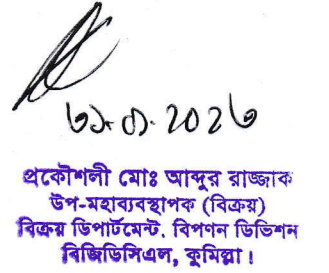 ২০২৬
প্রকৌশলী মোঃ আব্দুর রাজ্জাক
উপ-মহাব্যবস্থাপক (বিক্রয়)
বিক্রয় ডিপার্টমেন্ট, বিপণন ডিভিশন
বিজিডিসিএল, কুমিল্লা।